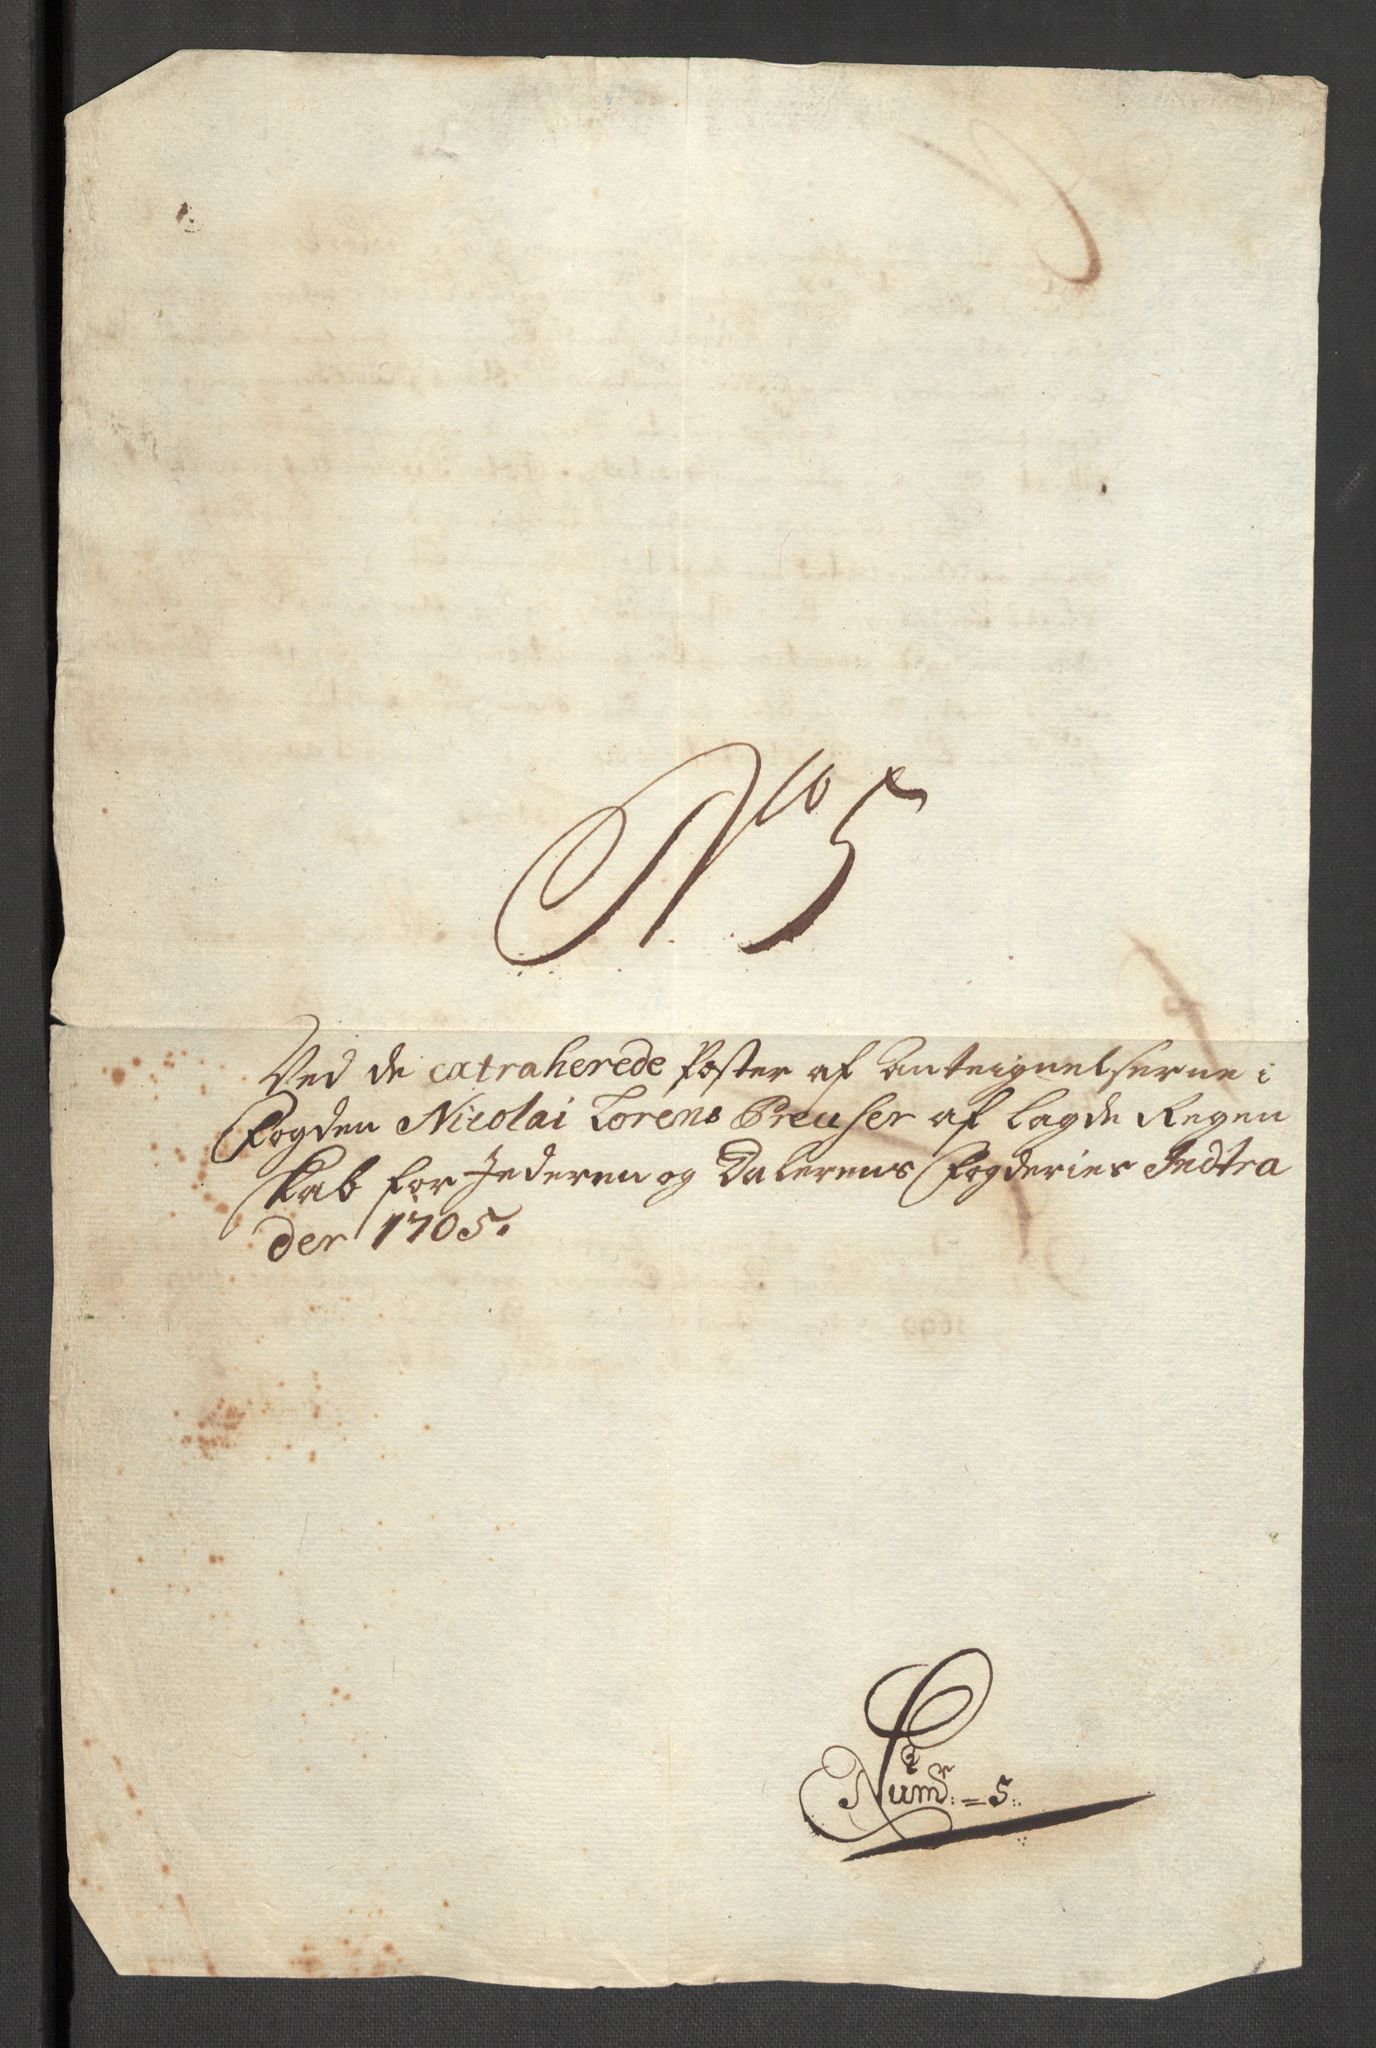 No 5
Ved de extraherede Poster af Anteignelserne i
Fogden Nicolai Lorens Preuser af lagde Regen
skab for Jederen og Dalerens Fogderies Indtra
der 1705.
Numr: = 5: